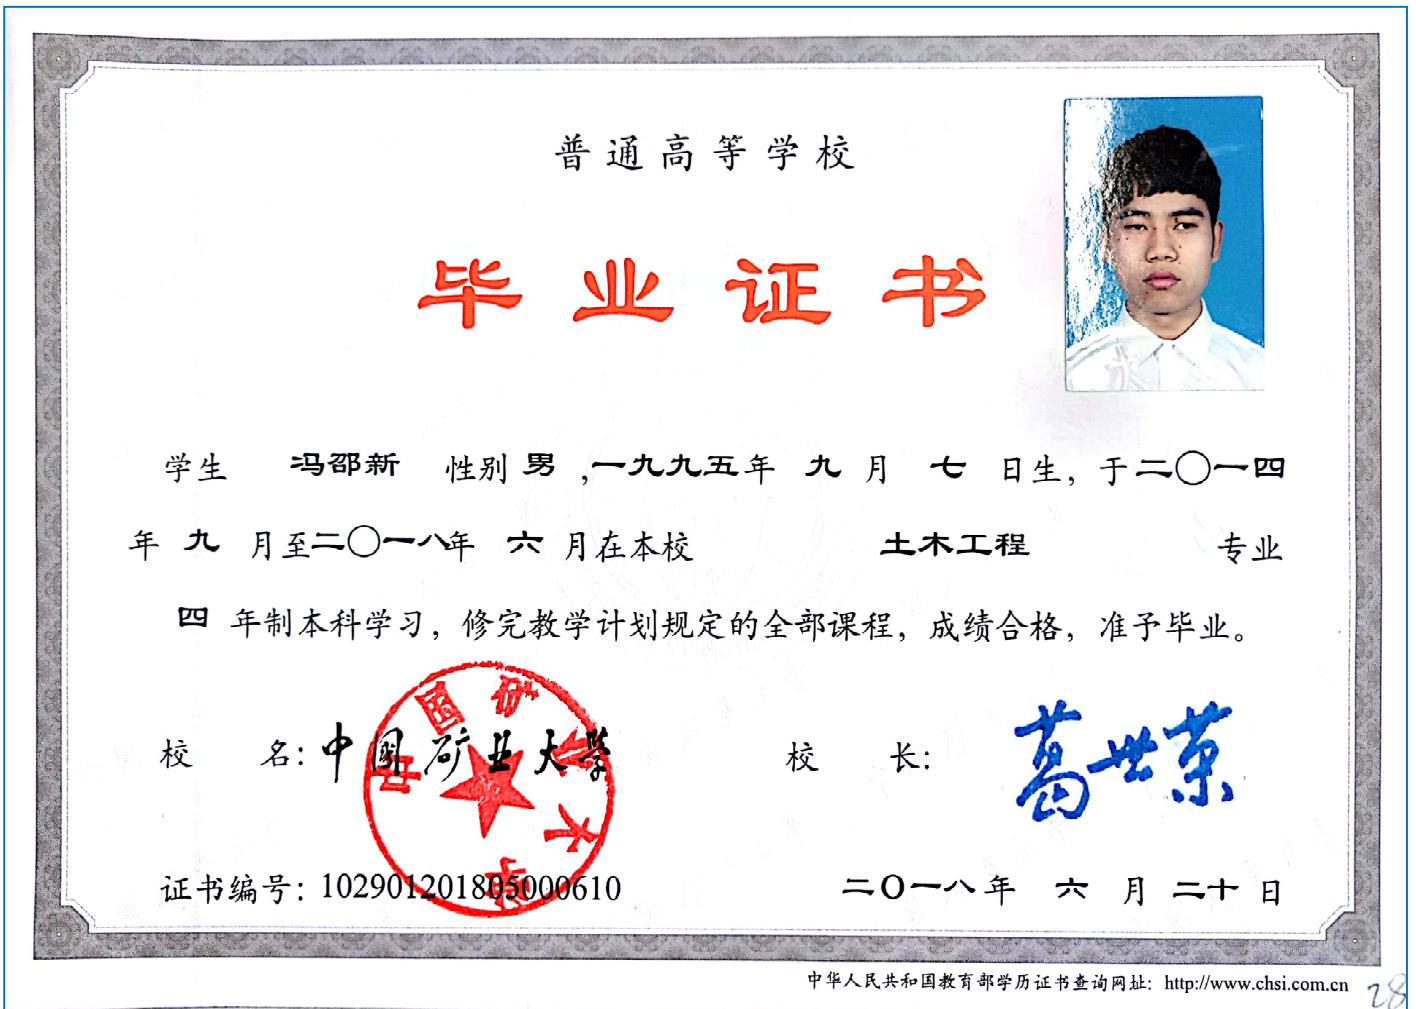 普通高等学校
毕业证书
学生 冯邵新 性别 男 ,一九九五年 九 月 七 日生，于二〇一四
年 九 月至二〇一八年 六 月在本校 土木工程 专业
四 年制本科学习，修完教学计划规定的全部课程，成绩合格，准予毕业。
校 名：中国矿业大学 校 长：葛世荣
中国矿业大学
证书编号：102901201805000610 二〇一八年 六 月 二十 日
中华人民共和国教育部学历证书查询网址：http://www.chsi.com.cn
28